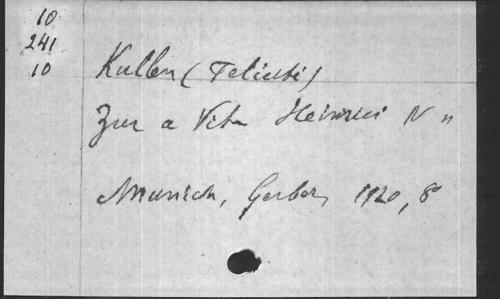 10
241
10
Kullen (Felicits)
Zur a Vita Heinrici IV "
Munich, Gerber, 1920, 8°